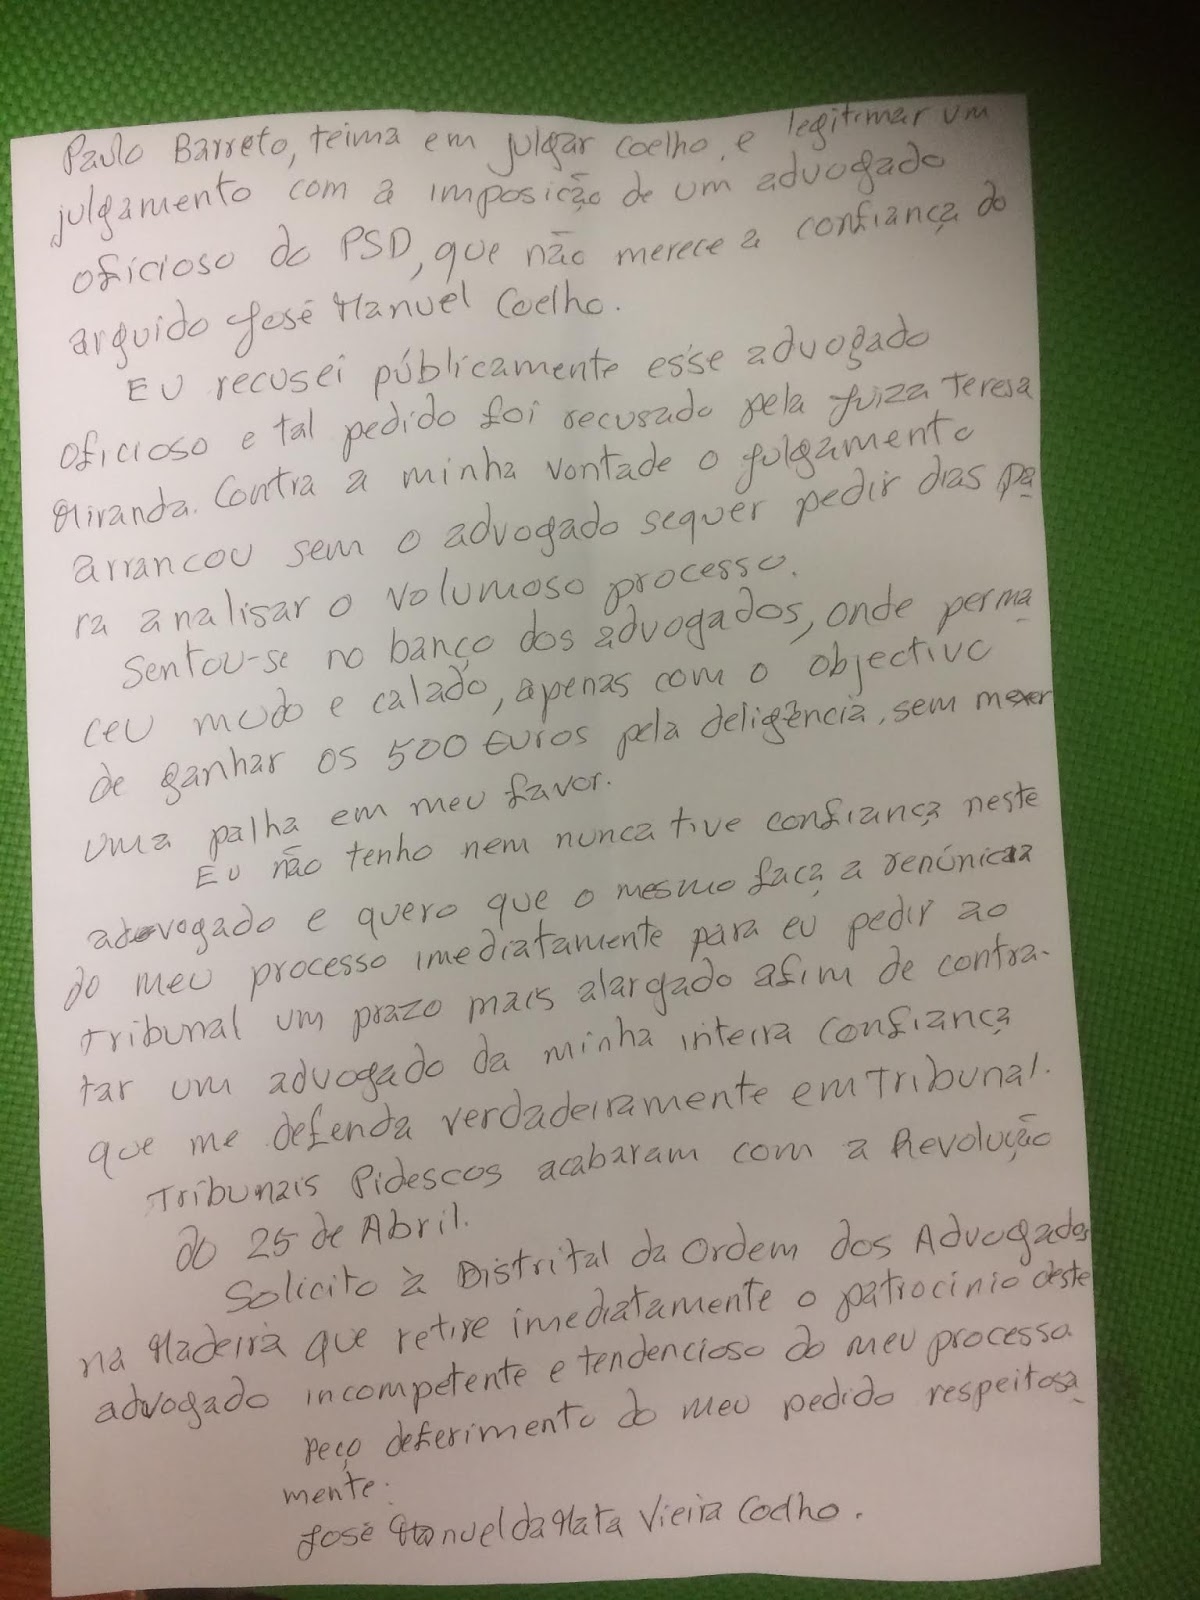 Paulo Barreto, teima em julgar Coelho, e legitimar um
julgamento com a imposição de um advogado
oficioso do PSD, que não merece a confiança do
arguido José Manuel Coelho.
Eu recusei públicamente esse advogado
oficioso e tal pedido foi recusado pela juiza Teresa
Miranda. Contra a minha vontade o julgamento
arrancou sem o advogado sequer pedir dias pa
ra analisar o volumoso processo.
Sentou-se no banço dos advogados, onde perma
ceu mudo e calado, apenas com o objectivo
de ganhar os 500 Euros pela deligência, sem mexer
uma palha em meu favor.
Eu não tenho nem nunca tive confiança neste
adovogado e quero que o mesmo faça a renúnicia
do meu processo imediatamente para eu pedir ao
tribunal um prazo mais alargado afim de contra-
tar um advogado da minha inteira confiança
que me defenda verdadeiramente em Tribunal.
Tribunais Pidescos acabaram com a Revolução
do 25 de Abril.
Solicito à Distrital da Ordem dos Advogados
na Madeira que retire imediatamente o patrocinio deste
advogado incompetente e tendencioso do meu processo
peço deferimento do meu pedido respeitosa-
mente.
José Manuel da Mata Vieira Coelho.